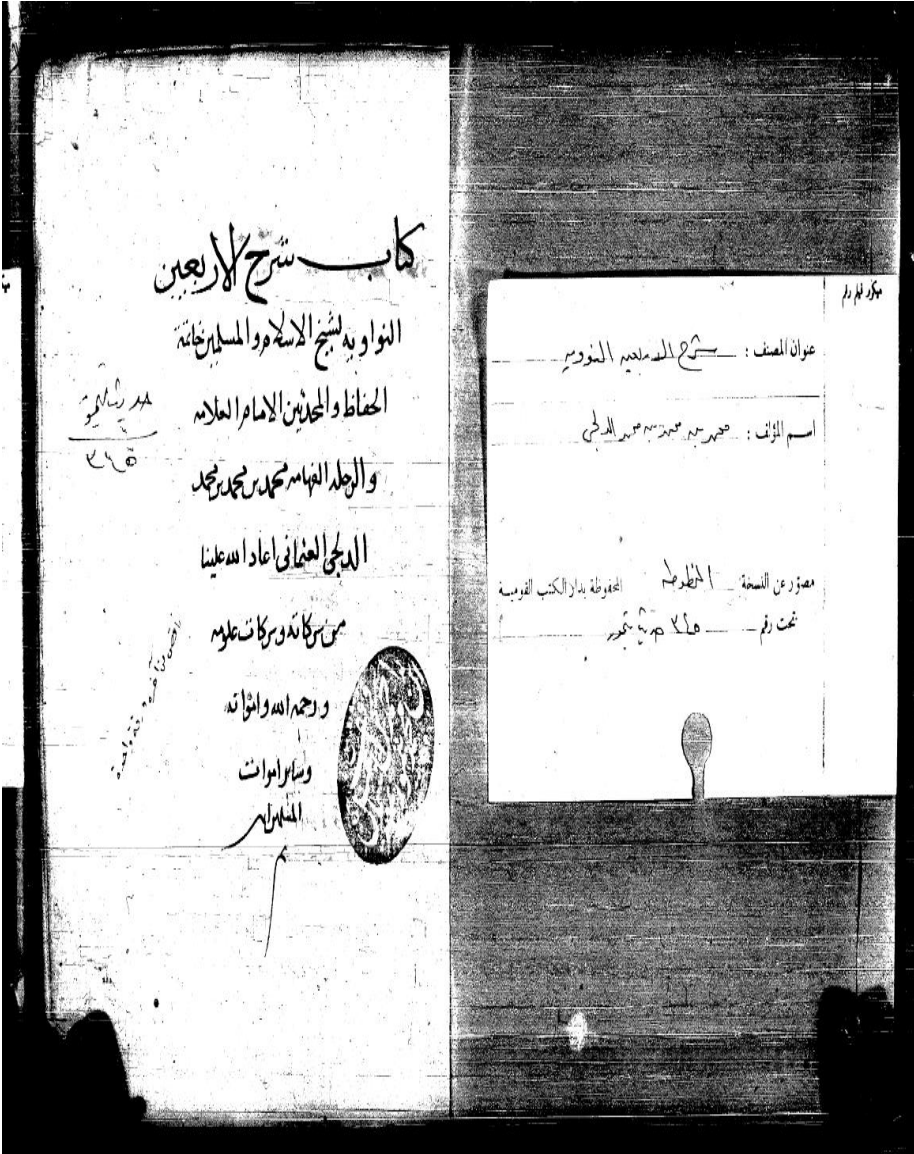 ميكروفيلم رقم
عنوان المصنف : شرح الاربعين النووية
اسم المؤلف : محمد بن محمد بن محمد الدلجى
مصور عن النسخة المخطوطة المحفوظة بدار الكتب القومية
تحت رقم ٣٦٥ حديث تيمور
كتاب شرح الاربعين
النواويه لشيخ الاسلام والمسلمين خاتمة
الحفاظ والمحدثين الامام العلامه
والرحله الفهامه محمد بن محمد بن محمد
الدلجى العثمانى اعاد الله علينا
من بركاته وبركات علومه
ورحمه الله وامواته
وساير اموات
المسلمين امين
م
حديث تيمور
٣٦٥